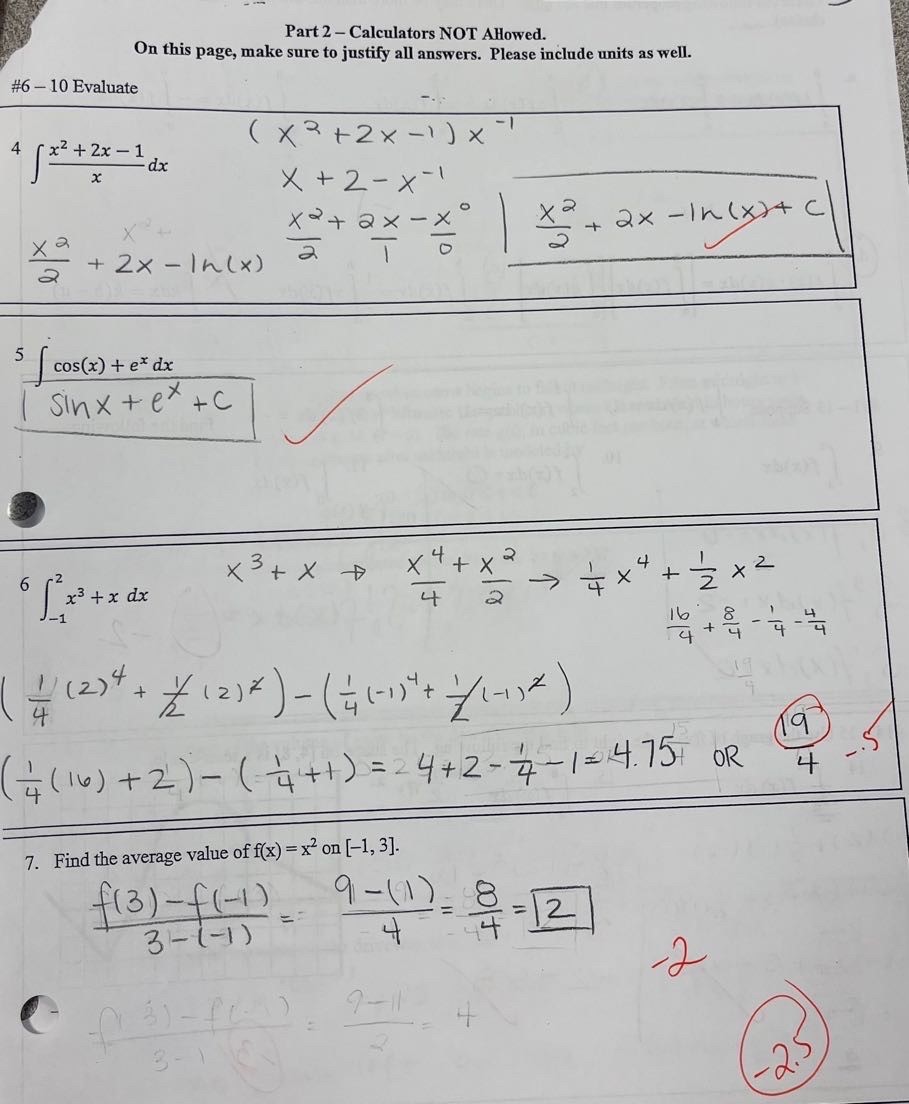 Part 2 – Calculators NOT Allowed.
On this page, make sure to justify all answers. Please include units as well.
#6 – 10 Evaluate
4 ∫ (x² + 2x − 1)/x dx
(x² + 2x − 1) x⁻¹
x + 2 − x⁻¹
x²/2 + 2x/1 − x⁰/0
x²/2 + 2x − ln(x) + C
x²/2 + 2x − ln(x)
5 ∫ cos(x) + eˣ dx
sinx + eˣ + C
6 ∫₋₁² x³ + x dx
x³ + x → x⁴/4 + x²/2 → 1/4 x⁴ + 1/2 x²
16/4 + 8/4 − 1/4 − 4/4
19/4
(1/4 (2)⁴ + 1/2 (2)²) − (1/4 (−1)⁴ + 1/2 (−1)²)
(1/4 (16) + 2) − (1/4 + 1) = 4 + 2 − 1/4 − 1 = 4.75 OR 19/4 -.5
7. Find the average value of f(x) = x² on [−1, 3].
f(3) − f(−1) / 3 − (−1) = 9 − (1) / 4 = 8/4 = 2
-2
f(3) − f(-1) / 3 − 1 = 9 − 1 / 2 = 4
-2.5